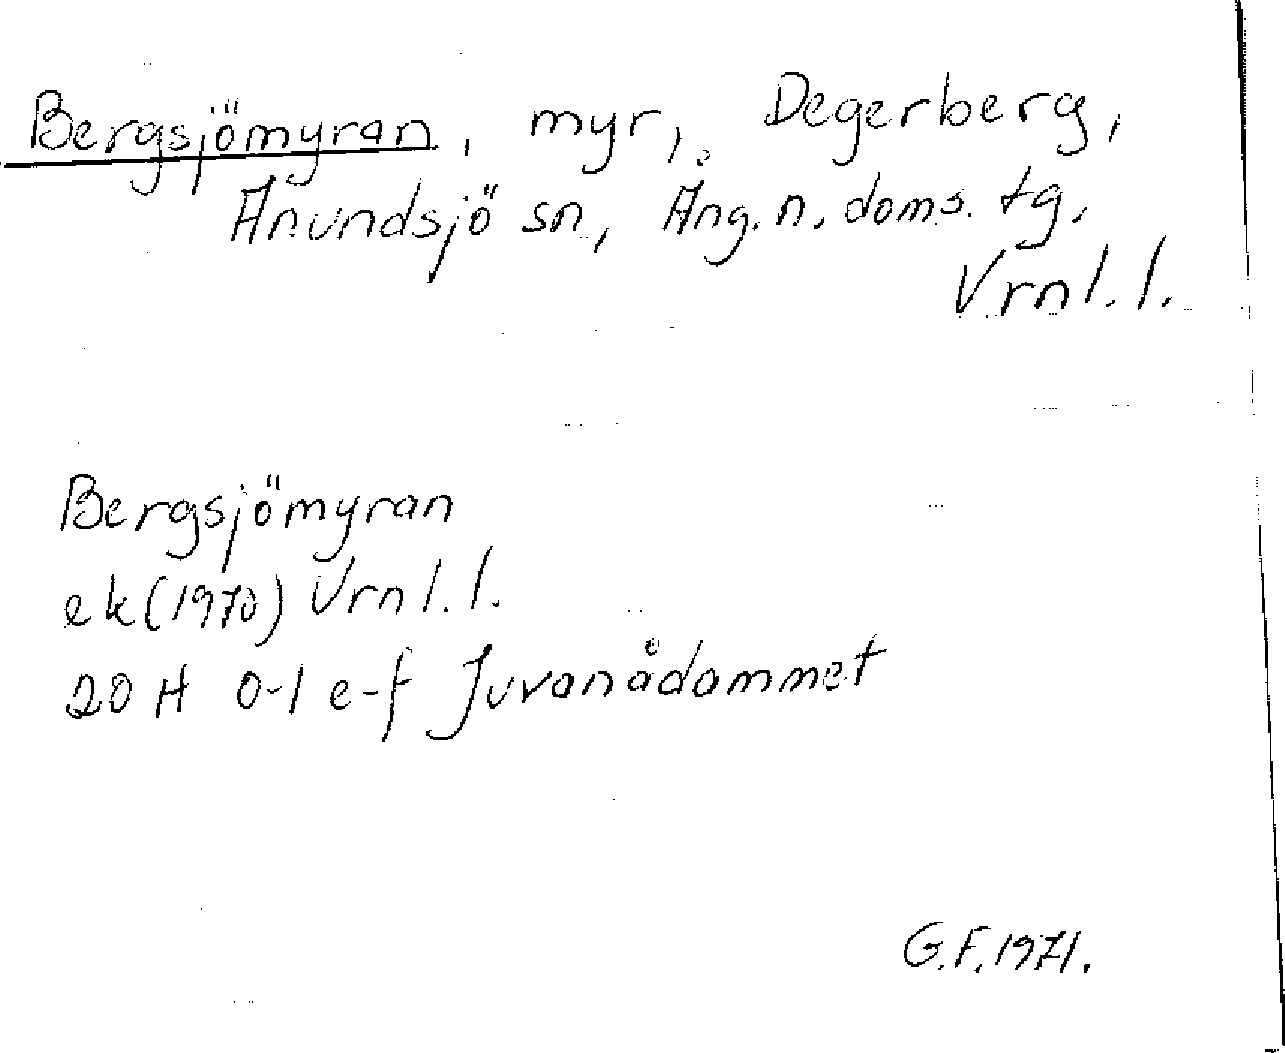 Bergsjömyran, myr, Degerberg,
Anundsjö sn, Ång.n.doms.tg,
Vrnl.l.
Bergsjömyran
ek(1970) Vrnl.l.
20 H 0-1 e-f Juvanådammet
G.F.1971.